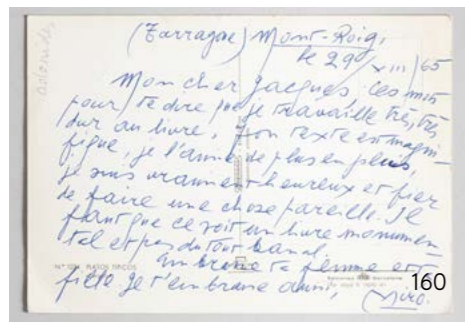 (Tarragone) Mont-Roig,
le 29/XIII/65
Mon cher Jacques, ces mots
pour te dire que je travaille très, très
dur au livre. Ton texte est magni-
fique, je l'aime de plus en plus,
je suis vraiment heureux et fier
de faire une chose pareille. Il
faut que ce soit un livre monumen-
tal et pas du tout banal.
Embrasse ta femme et ta
fille je t'embrasse aussi,
Miró.
Nº 12 PLATOS TIPICOS
160